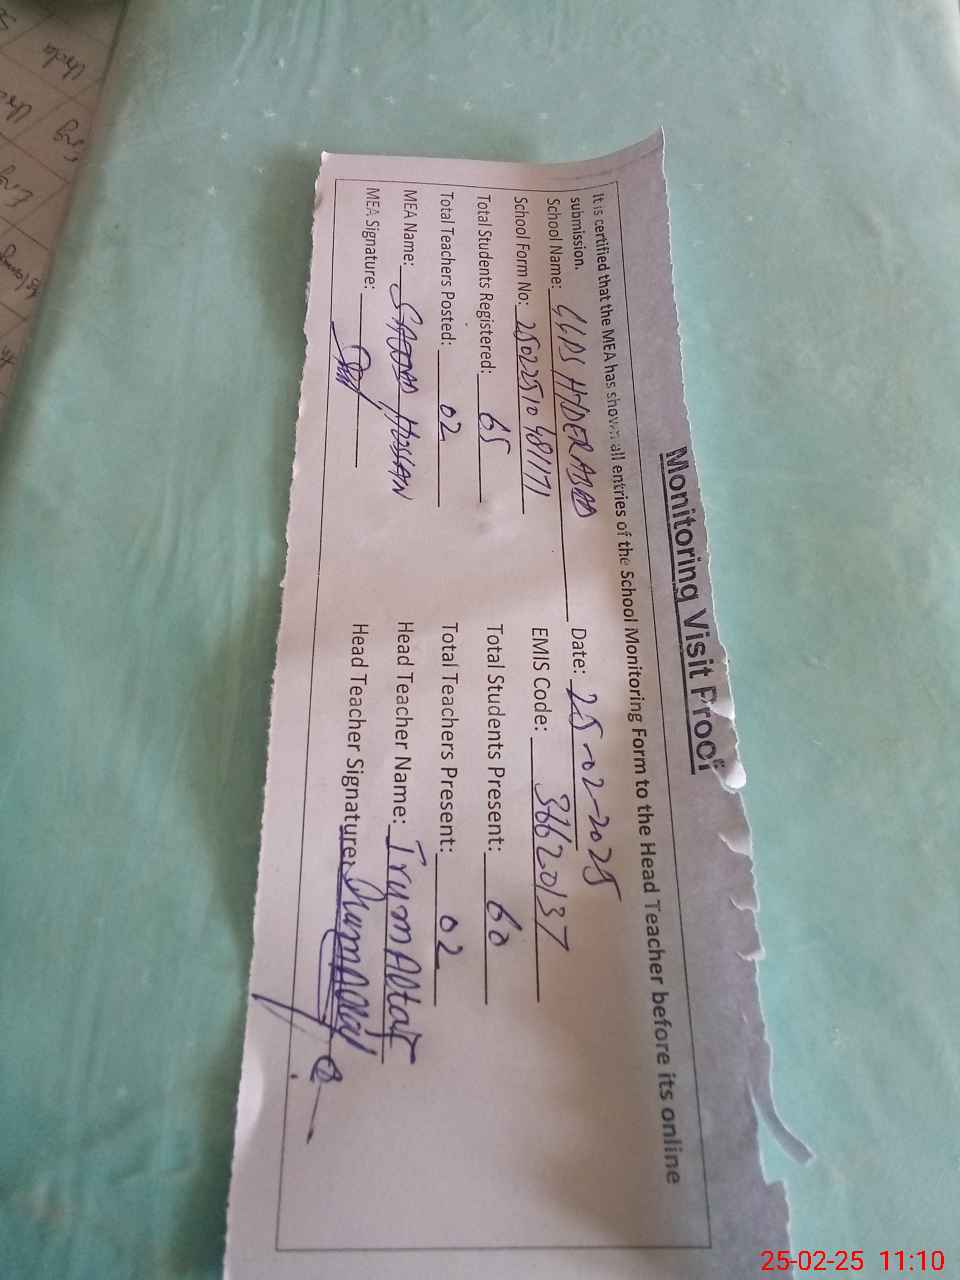 Monitoring Visit Proof
It is certified that the MEA has shown all entries of the School Monitoring Form to the Head Teacher before its online
submission.
School Name: GGPS HYDERABAD Date: 25-02-2025
School Form No: 25022510481171 EMIS Code: 36620137
Total Students Registered: 65 Total Students Present: 60
Total Teachers Posted: 02 Total Teachers Present: 02
MEA Name: SAJJAD HUSSAIN Head Teacher Name: Irum Altaf
MEA Signature: Head Teacher Signature:
Urdu
Eng
25-02-25 11:10